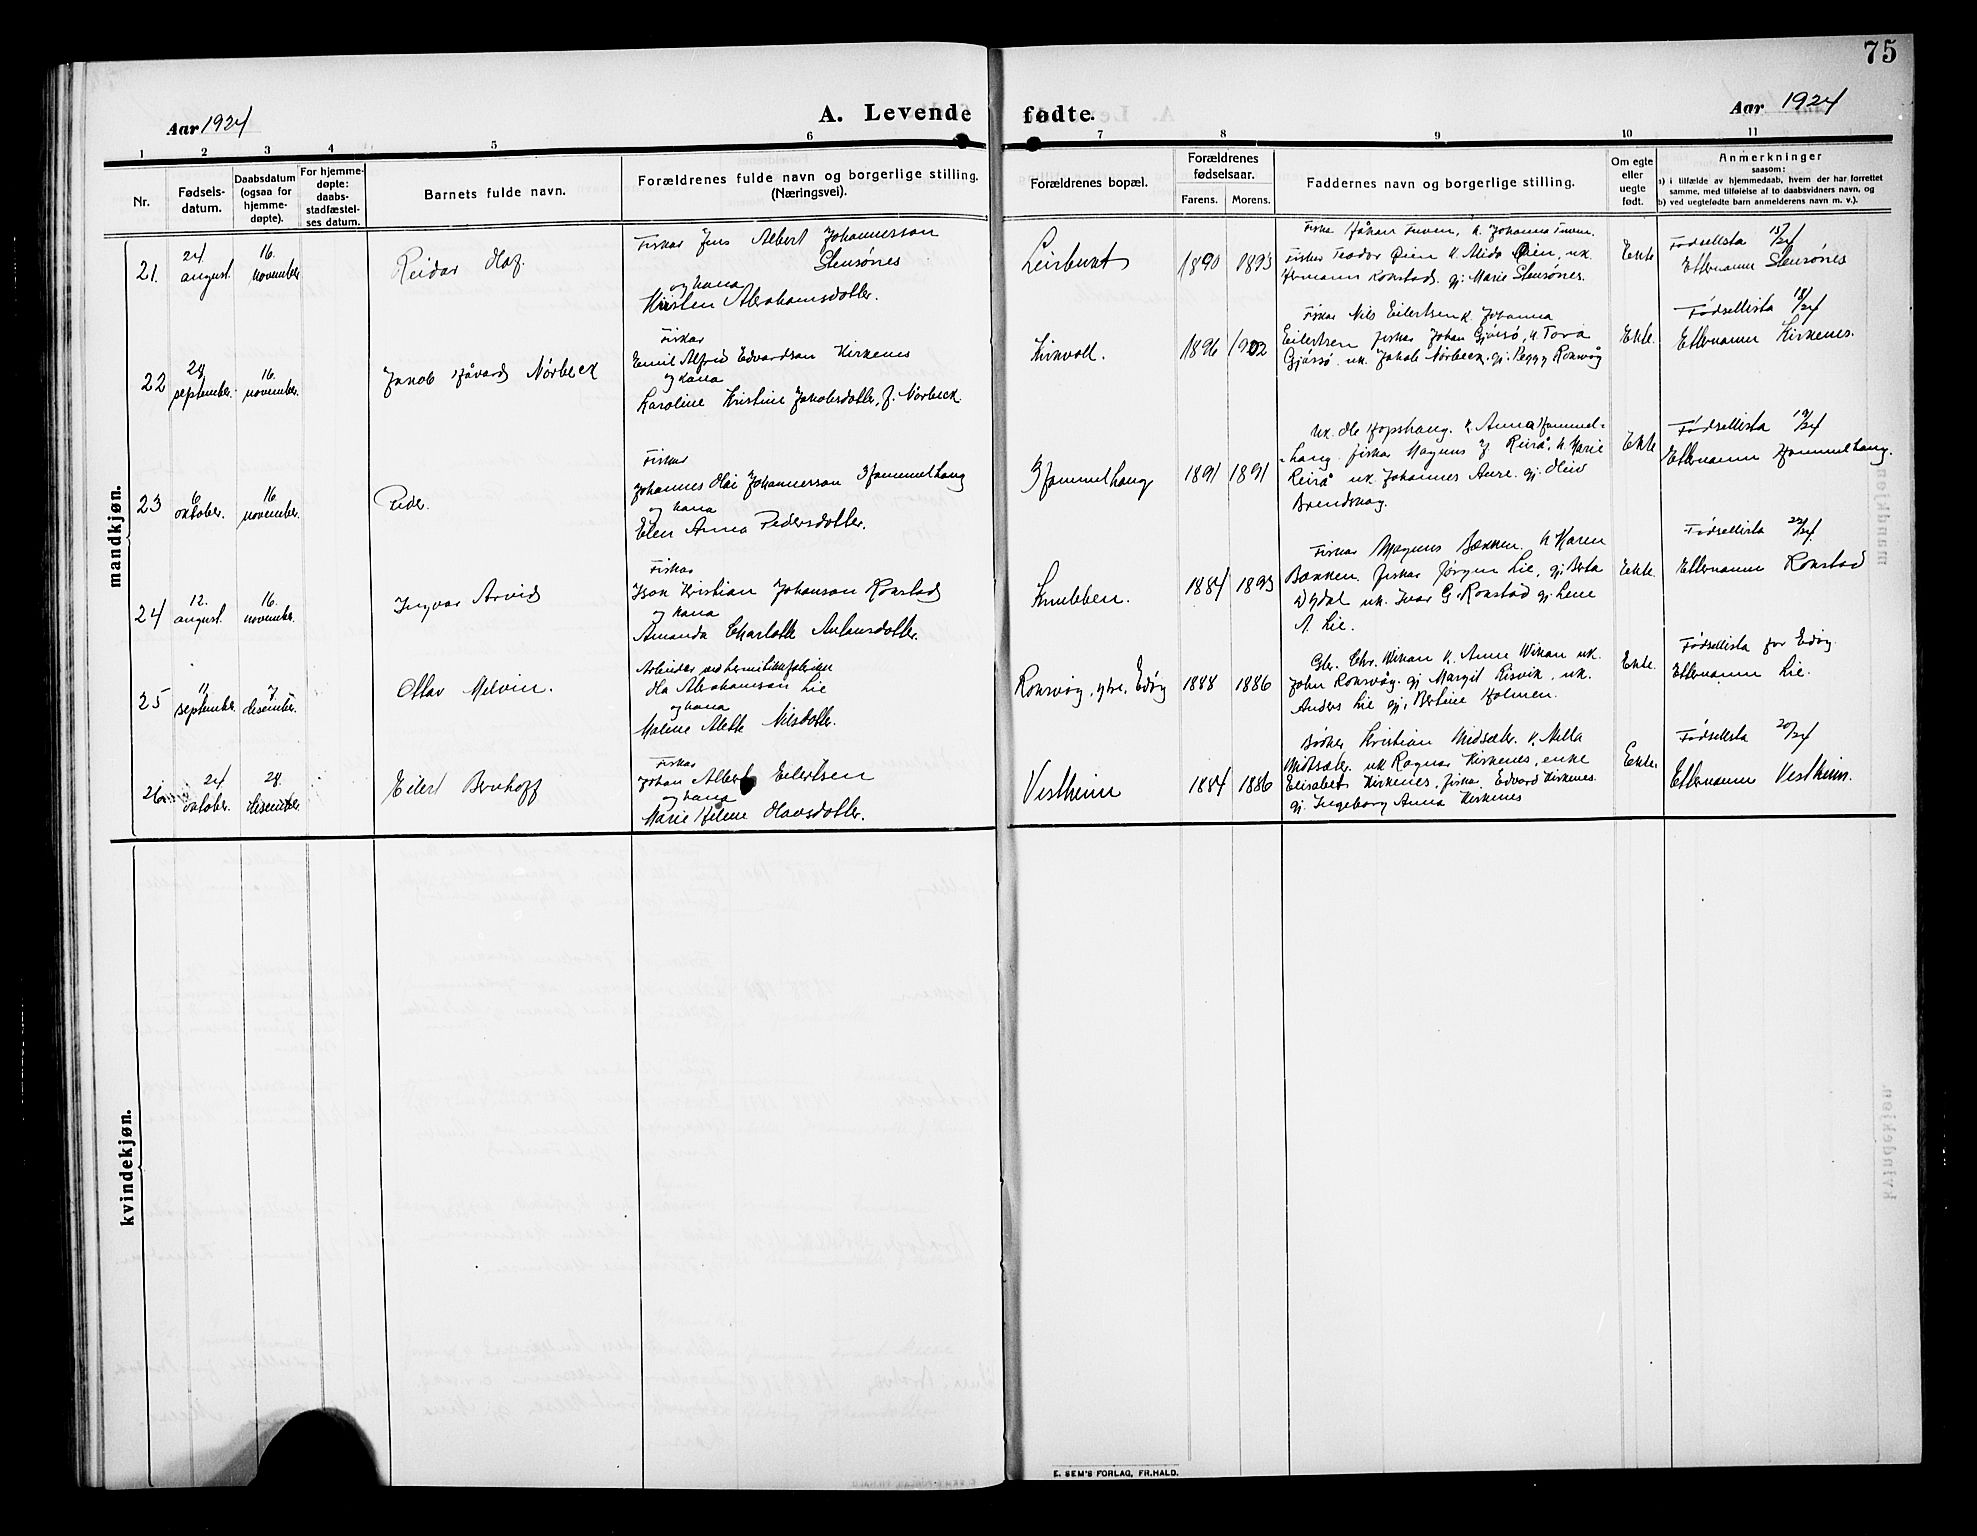 75
Aar 1924
A. Levende fødte.
Aar 1924
1 2 3 4 5 6 7 8 9 10 11
Nr.
Fødsels-
datum.
Daabsdatum
(ogsaa for
hjemme-
døpte).
For hjemme-
døpte:
daabs-
stadfæstel-
ses datum.
Barnets fulde navn.
Forældrenes fulde navn og borgerlige stilling.
(Næringsvei).
Forældrenes bopæl.
Forældrenes
fødselsaar.
Farens. Morens.
Faddernes navn og borgerlige stilling.
Om egte
eller
uegte
født.
Anmerkninger
saasom:
a) i tilfælde av hjemmedaab, hvem der har forrettet
samme, med tilføielse af to daabsvidners navn, og
b) ved uegtefødte barn anmelderens navn m. v.).
mandkjøn.
21.
24
august.
16.
november
Reidar Olaf.
Fiskar Jens Albert Johannesson
Stensønes
og kona
Kirsten Abrahamsdotter.
Leirbukt
1890 1893
Fiskar Håkan Tuven, k. Johanna Tuven.
Fiskar Teodor Øien k. Alida Øien, uk.
Hermann Ronstad. gj. Marie Stensønes.
Ekte
Fødsellista 15/24
Etternamn Stensønes
22
28
september.
16.
november.
Jakob Håvard Nørbeck
Fiskar
Emil Alfred Edvardson Kirkenes
og kona
Karoline Kristine Jakobsdotter, f. Nørbeck
Kirkvoll.
1896 1902
Fiskar Nils Eilertsen k. Johanna
Eilertsen fiskar Johan Gjøssø, k. Tora
Gjøssø. uk. Jakob Nørbeck. gj. Peggy Roksvåg
Ekte.
Fødsellista 18/24
Etternamn Kirkenes.
23
6
oktober.
16
november.
Peder.
Fiskar
Johannes Olai Johannesson Hammelhaug
og kona
Elen Anna Pedersdotter.
Hammelhaug
1891 1891
uk. Ole Hopshaug. k. Anna Hammel-
haug. fiskar Magnus J Reirå, k. Marie
Reirå uk. Johannes Aure. gj. Oliv
Brendskag.
Ekte
Fødsellista 19/24
Etternamn Hammelhaug.
24
12.
august.
16.
november.
Ingvar Arvid
Fiskar
Isak Kristian Johanson Ronstad
og kona
Amanda Charlotte Antonsdotter.
Knubben.
1884 1893
Fiskar Magnus Bakken. k. Karen
Bakken. fiskar Jørgen Lie, gj. Berta
Dydal uk. Ivar G. Ronstad gj. Lene
A. Lie.
Ekte.
Fødsellista 22/24
Etternamn Ronstad
25
11
september.
7.
desember.
Ottar Melvin.
Arbeidar ved hermetikkfabrikken
Ola Abrahamson Lie
og kona
Malene Alette Nilsdotter.
Roksvåg, ytre, Edøy
1888 1886
Gbr. Chr. Wikan k. Anne Wikan uk.
John Roksvåg. gj Margit Risvik, uk.
Anders Lie gj. Bertine Holmen.
Ekte.
Fødsellista for Edøy
Etternamn Lie.
26
24
oktober.
28.
desember.
Eilert Bernhoff
Fiskar
Johan Albert Eilertsen
og kona
Marie Helene Olausdotter.
Vestheim
1884 1886
Bødker Kristian Midsæter. k. Milla
Midtsæter. uk Ragnar Kirkenes, enke
Elisabet Kirkenes, fiskar Edvard Kirkenes
gj. Ingeborg Anna Kirkenes
Ekte.
Fødsellista 20/24
Etternamn Vestheim.
kvindekjøn.
E. SEM'S FORLAG, FR.HALD.